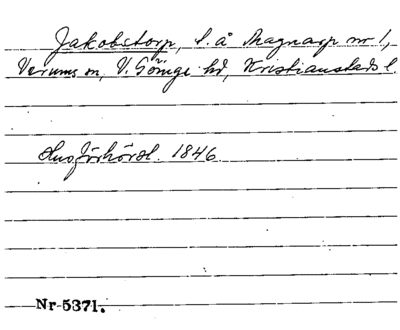 Jakobstorp, l. å Skagnarp nr 1,
Verums sn, V. Göinge hd, Kristianstads l.
Husförhörsl. 1846
Nr 5371.